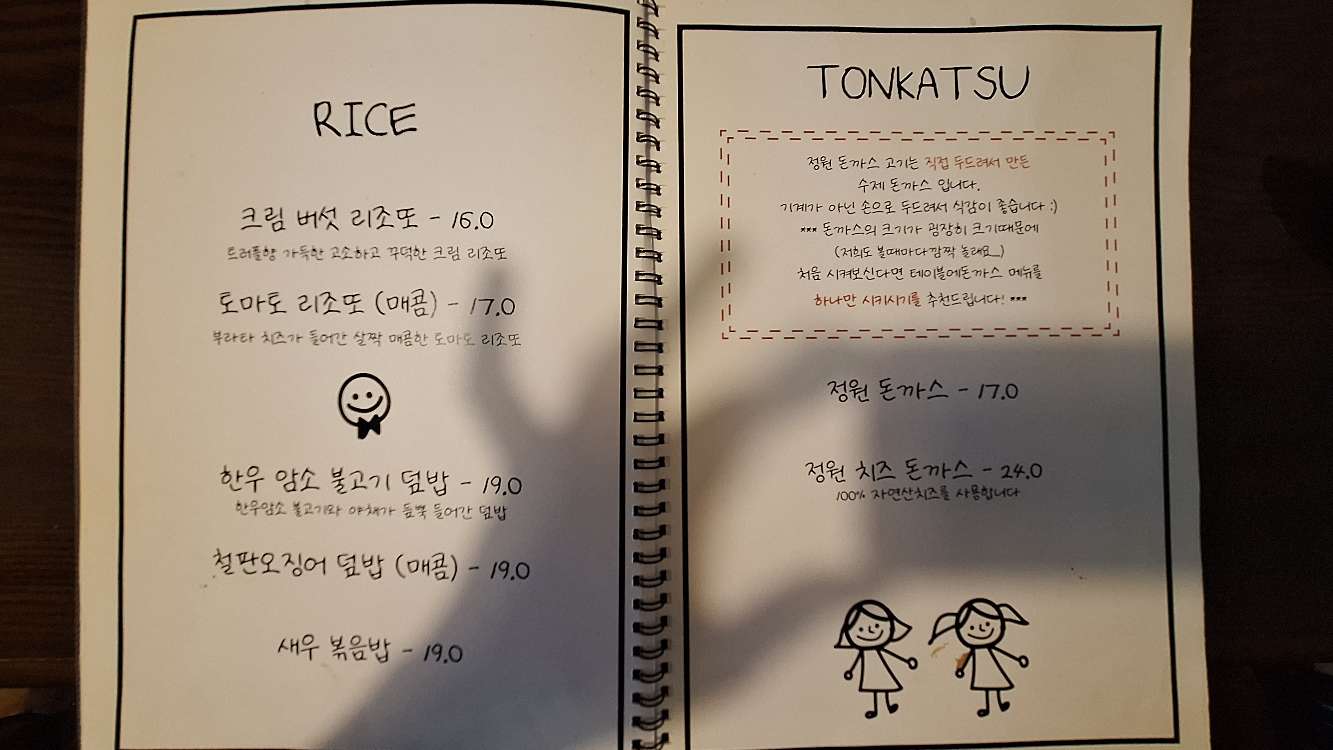 RICE
크림 버섯 리조또 - 16.0
트러플향 가득한 고소하고 꾸덕한 크림 리조또
토마토 리조또 (매콤) - 17.0
부라타 치즈가 들어간 살짝 매콤한 토마토 리조또
한우 암소 불고기 덮밥 - 19.0
한우암소 불고기와 야채가 듬뿍 들어간 덮밥
철판오징어 덮밥 (매콤) - 19.0
새우 볶음밥 - 19.0
TONKATSU
정원 돈까스 고기는 직접 두드려서 만든
수제 돈까스 입니다.
기계가 아닌 손으로 두드려서 식감이 좋습니다 :)
*** 돈까스의 크기가 굉장히 크기때문에
(저희도 볼때마다 깜짝 놀래요_)
처음 시켜보신다면 테이블에돈까스 메뉴를
하나만 시키시기를 추천드립니다! ***
정원 돈까스 - 17.0
정원 치즈 돈까스 - 24.0
100% 자연산치즈를 사용합니다